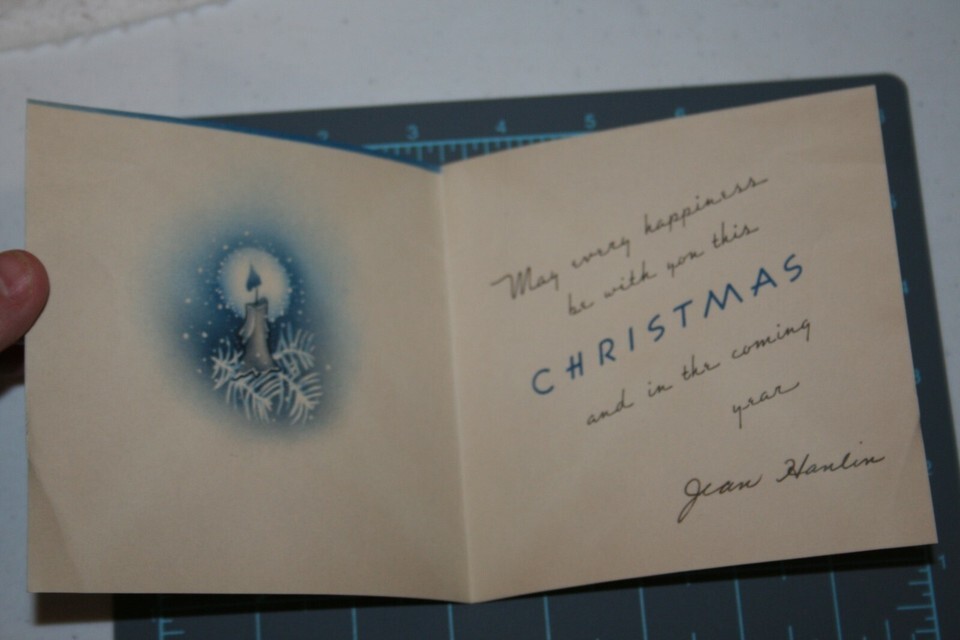 2 3 4 5 6
May every happiness
be with you this
CHRISTMAS
and in the coming
year
Jean Hanlin
3
2
1